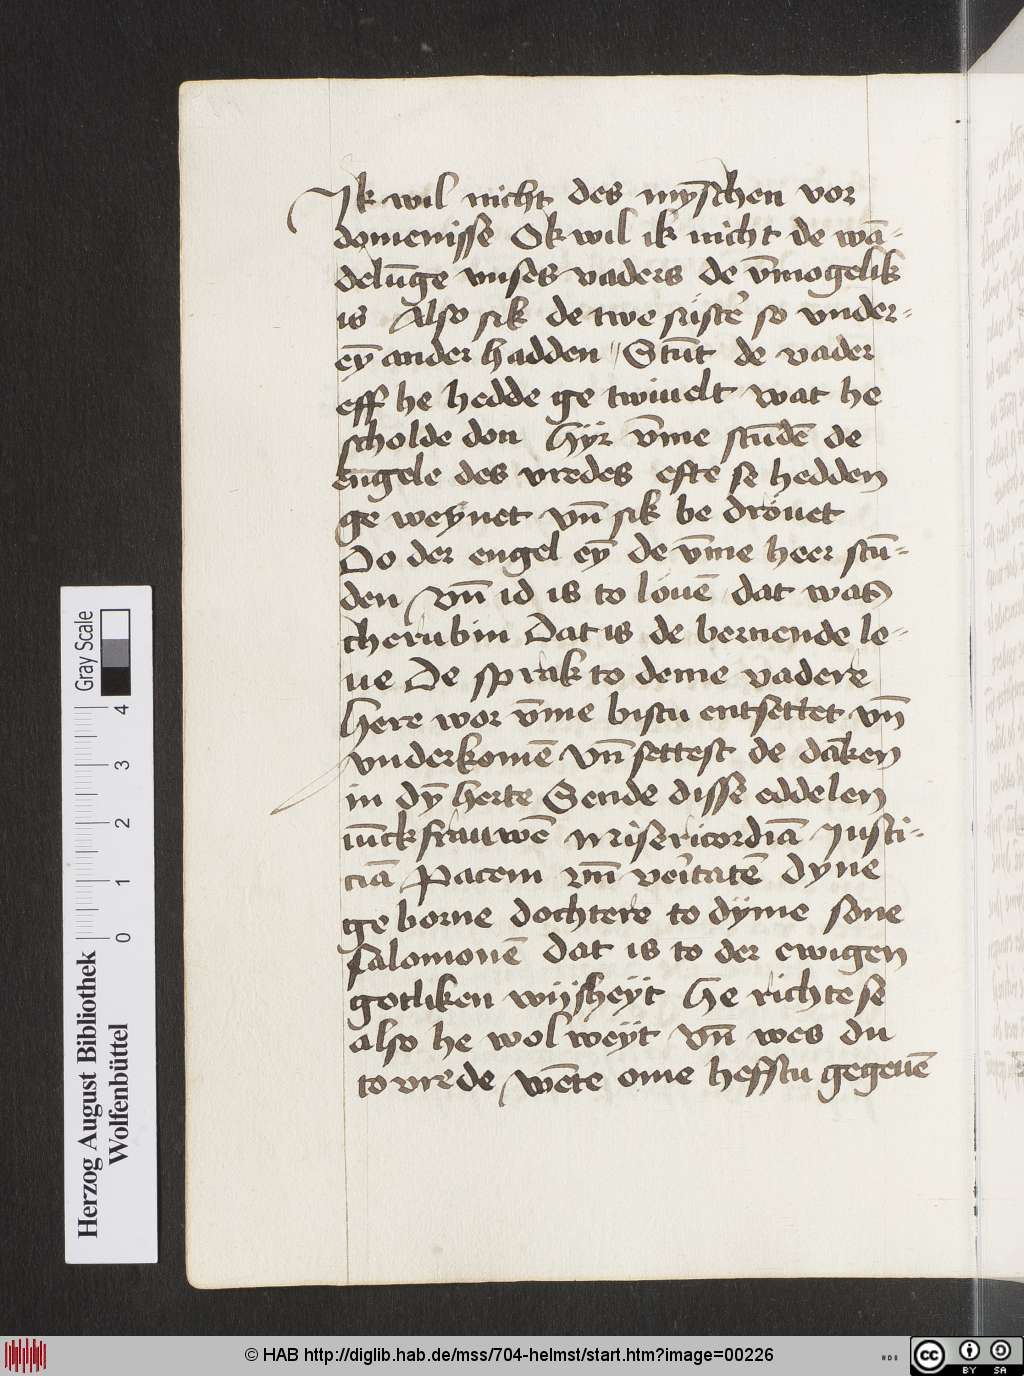 Jk wil nicht des mynschen vor
domenisse Ok wil ik nicht de wā-
delūge vnses vaders de v̄mogelik
is Also sik de twe süste͛ so vnder-
eȳ ander hadden Stūt de vader
eff he hedde ge twiuelt wat he
scholde don Hÿr v̄me stūdē de
engele des vredes efte se hedden
ge weÿnet vn̄ sik be dröuet
Do der engel eȳ de v̄me heer stū-
den vn̄ id is to löuē dat was
cherubin Dat is de bernende le-
ue De sprak to deme vadere
Here wor v̄me bistu entsettet vn̄
vnderkomē vn̄ settest de dāken
in dȳ herte Sende disse eddelen
iūckfrauwē Misericordiā Justi-
ciā Pacem vn̄ ve͛itatē dyne
ge borne dochtere to dÿme sone
salomonē dat is to der ewigen
gotliken wijsheÿt He richte se
also he wol weÿt vn̄ wes du
to vrede wēte ome hefstu gegeuē
Herzog August Bibliothek
Wolfenbüttel
0 1 2 3 4
Gray Scale
© HAB http://diglib.hab.de/mss/704-helmst/start.htm?image=00226
HAB
cc BY SA